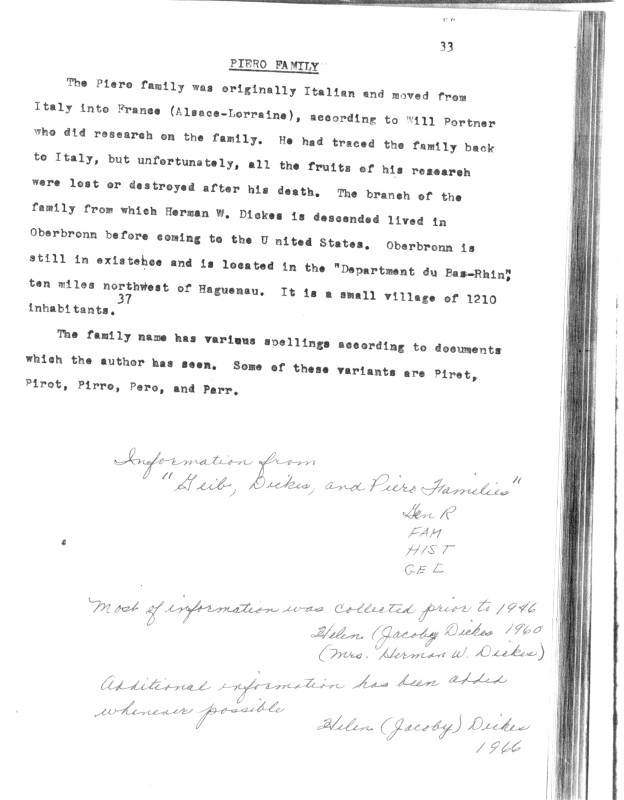 33
PIERO FAMILY
The Piero family was originally Italian and moved from
Italy into France (Alsace-Lorraine), according to Will Portner
who did research on the family. He had traced the family back
to Italy, but unfortunately, all the fruits of his research
were lost or destroyed after his death. The branch of the
family from which Herman W. Dickes is descended lived in
Oberbronn before coming to the U nited States. Oberbronn is
still in existence and is located in the "Department du Bas-Rhin",
ten miles northwest of Haguenau. It is a small village of 1210
inhabitants.37
The family name has various spellings according to documents
which the author has seen. Some of these variants are Piret,
Pirot, Pirro, Pero, and Perr.
Information from
"Geib, Dickes, and Piero Families"
Gen R
FAM
HIST
GEI
Most of information was collected prior to 1946
Helen (Jacoby Dickes 1960
(Mrs. Herman W. Dickes)
Additional information has been added
whenever possible
Helen (Jacoby) Dickes
1966